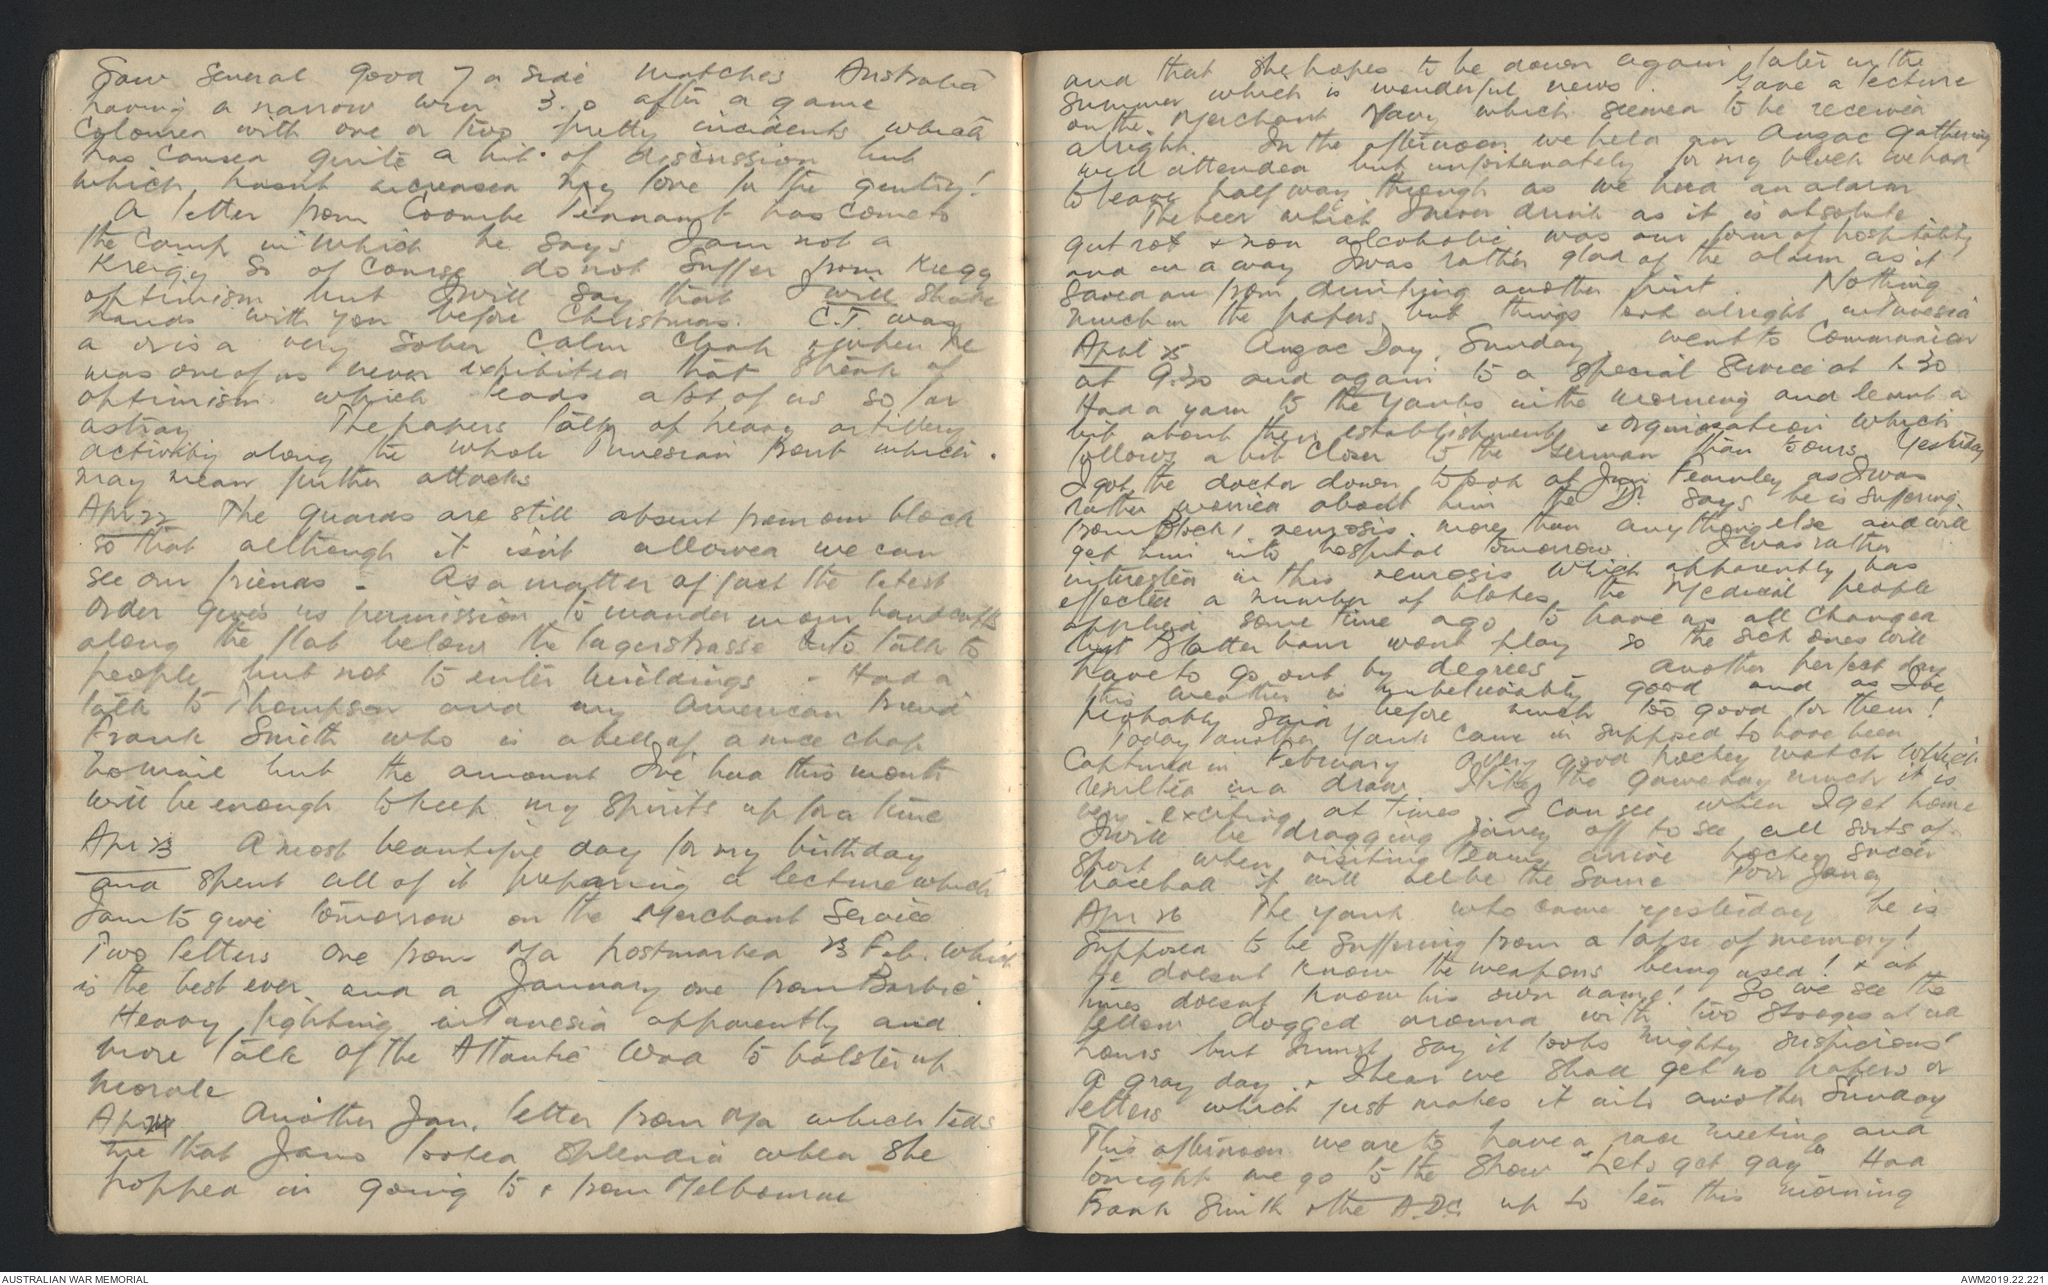 Saw several good 7 a side matches Australia
having a narrow win 3.0 after a game
coloured with one or two pretty incidents which
has caused quite a bit of discussion but
which hasnt increased my love for the gentry!
A letter from Coombe Tennant has come to
the camp in which he says I am not a
Kreigy so of course do not suffer from Kregy
optimism but I will say that I will shake
hands with you before Christmas. C.T. was
a or is a very sober calm chap & when he
was one of us never exhibited that streak of
optimism which leads a lot of us so far
astray The papers talk of heavy artillery
activity along the whole Tunesian front which
may mean further attacks
Apr 22 The guards are still absent from our block
so that although it isnt allowed we can
see our friends - As a matter of fact the latest
order gives us permission to wander in our handcuffs
along the flat below the lagerstrasse & to talk to
people but not to enter buildings - Had a
talk to Thompson and my American friend
Frank Smith who is a hell of a nice chap
No mail but the amount I've had this month
will be enough to keep my spirits up for a time
Apr 23 A most beautiful day for my birthday
and spent all of it preparing a lecture which
I am to give tomorrow on the Merchant Service
Two letters one from Ma postmarked 23 Feb. which
is the best ever and a January one from Barbie.
Heavy fighting in Tunesia apparently and
more talk of the Atlantic Wall to bolster up
morale
Apr 24 Another Jan. letter from Ma which tells
me that Jans looked splendid when she
popped in going to & from Melbourne
and that she hopes to be down again later in the
summer which is wonderful news. Gave a lecture
on the Merchant Navy which seemed to be received
alright. In the afternoon we held an Anzac gathering
well attended but unfortunately for my block we had
to leave half way through as we had an alarm
The beer which I never drink as it is absolute
gut rot & non alcoholic was our form of hospitality
and in a way I was rather glad of the alarm as it
saved me from drinking another pint. Nothing
much in the papers but things look alright in Tunesia
April 25 Anzac Day, Sunday went to Communion
at 9.30 and again to a special service at 30
Had a yarn to the Yanks in the morning and learnt a
bit about their establishments & organisation which
follows a bit closer to the German than to ours. Yesterday
I got the doctor down to look at Jim Fearnley as I was
rather worried about him the Dr. says he is suffering
from Block 1 neurosis more than anything else and will
get him into hospital tomorrow. I was rather
interested in this neurosis which apparently has
effected a number of blokes, the Medical people
applied some time ago to have us all changed
but wont play so the sick ones will
have to go out by degrees - another perfect day
this weather is unbelievably good and as I've
probably said before much too good for them!
Today another Yank came in supposed to have been
captured in February A very good hockey match which
resulted in a draw I like the game very much it is
very exciting at times I can see when I get home
I will be dragging Janey off to see all sorts of
sport when visiting teams arrive hockey soccer
baseball it will all be the same Poor Janey
Apr 26 The Yank who came yesterday he is
supposed to be suffering from a lapse of memory!
He doesnt know the weapons being used! & at
times doesnt know his own name! So we see the
fellow dogged around with two stooges at all
hours but I must say it looks mighty suspicious!
A gray day. & I hear we shall get no papers or
letters which just makes it into another Sunday
This afternoon we are to have a race meeting and
tonight we go to the show "Let's get gay" Had
Frank Smith & the A.D.C. up to tea this morning
AUSTRALIAN WAR MEMORIAL
AWM2019.22.221